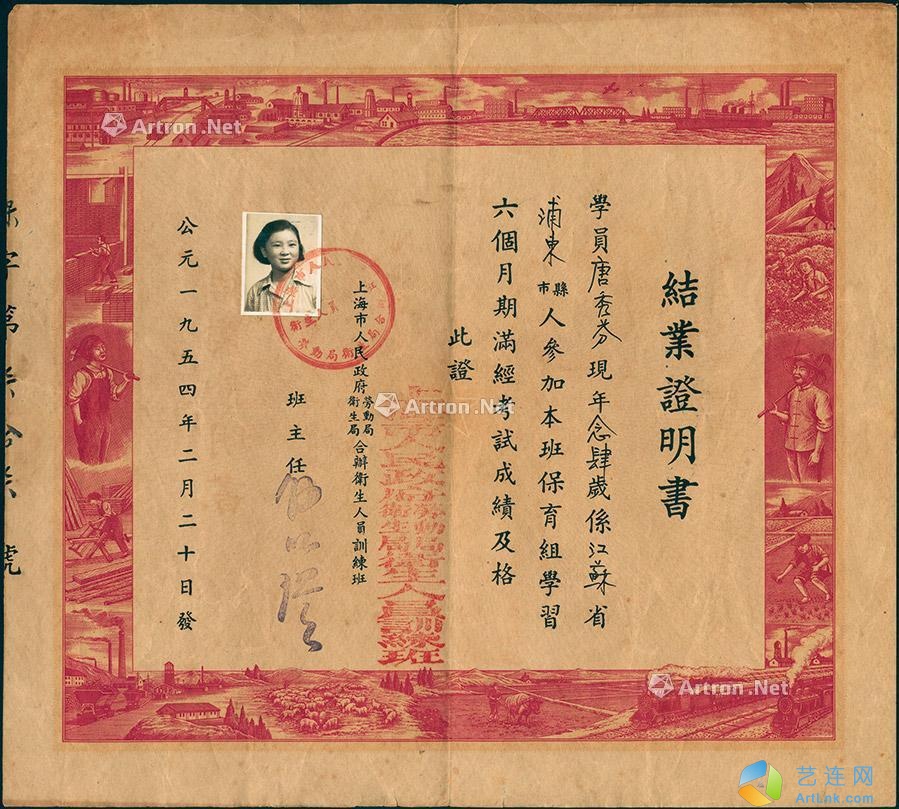 結業證明書
學員唐秀芬現年念肆歲係江蘇省
浦東市縣人參加本班保育組學習
六個月期滿經考試成績及格
此證
上海市人民政府勞動局衛生局合辦衛生人員訓練班
班主任
公元一九五四年二月二十日發
字第 號
上海市人民政府勞動局衛生局衛生人員訓練班
Artron.Net
Artron.Net
Artron.Net
Artron.Net
艺连网
ArtLnk.com